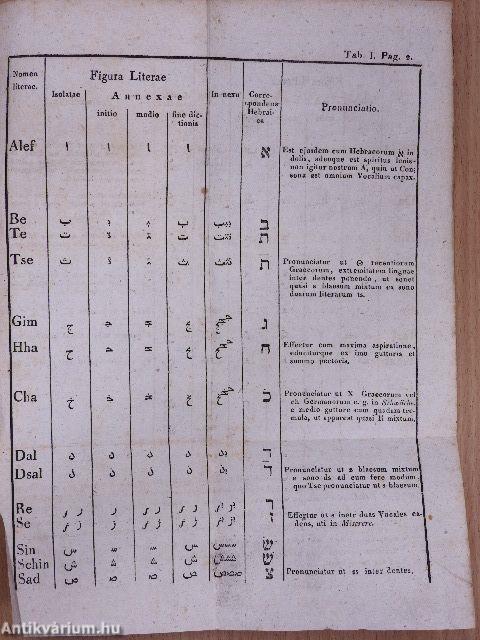 Tab I. Pag. 2.
Nomen literae.
Figura Literae
Isolatae
Annexae
initio
medio
fine dictionis
In nexu
Correspondens Hebraica
Pronunciatio.
Alef ا ا ا ا א
Est ejusdem cum Hebraeorum א in
dolis, adeoque est spiritus lenis
non igitur nostrum A, quin ut Con;
sona est omnium Vocalium capax.
Be ب ב
Te ت ת
Tse ث ת
Pronunciatur ut Θ recentiorum
Graecorum, extremitatem linguae
inter dentes ponendo, ut sonet
quasi a blaesum mixtum ex sono
duarum literarum ts.
Gim ج ג
Hha ح ח
Effertur cum maxima aspiratione,
educiturque ex imo gutturis et
summo pectoris.
Cha خ
Pronunciatur ut X Graecorum vel
ch Germanorum e. g. in Schwäche,
e medio gutture cum quadam tre-
mula, ut appareat quasi R mixtum.
Dal د ד
Dsal ذ ד
Pronunciatur ut z blaesum mixtum
e sono ds ad eum fere modum,
quo Tse pronunciatur ut s blaesum.
Re ر ר
Se ز ז
Effertur ut s inter duas Vocales ca-
dens, uti in Miserere.
Sin س ש
Schin ش ש
Sad ص צ
Pronunciatur ut ss inter dentes.
Antikvárium.hu